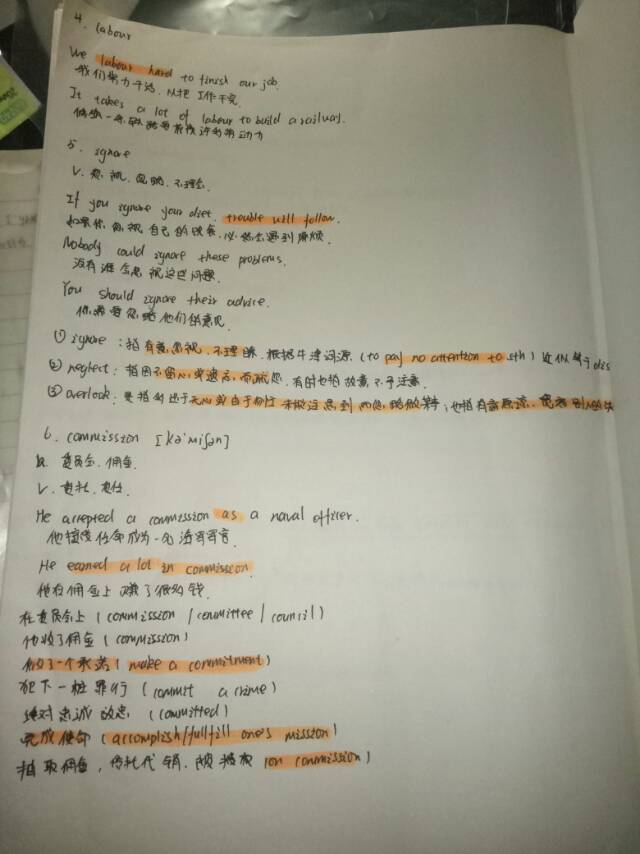 4. labour
We labour hard to finish our job.
我们努力干活,以把工作干完
It takes a lot of labour to build a railway.
修筑一条铁路要花费许多劳动力
5. ignore
v. 忽视,忽略,不理会.
If you ignore your diet, trouble will follow.
如果你忽视自己的饮食,必然会遇到麻烦.
Nobody could ignore these problems.
没有谁会忽视这些问题.
You should ignore their advice.
你需要忽略他们的意见
① ignore:指有意忽视,不理睬,根据牛津词源(to pay no attention to sth)近似等于dis
② neglect:指因不留心或遗忘,而疏忽.有时也指故意不予注意.
③ overlook:更指对处于无心或由于匆忙未做注意到而忽略做某;也指有意原谅、宽容别人的失
6. commission [kə'miʃən]
n. 委员会,佣金
v. 委托,委任
He accepted a commission as a naval officer.
他接受任命成为一名海军军官.
He earned a lot in commission.
他在佣金上赚了很多钱.
在委员会上(commission / committee / council)
他收了佣金(commission)
做了一个承诺(make a commitment)
犯下一桩罪行(commit a crime)
绝对忠诚 (committed)
完成使命(accomplish/fullfill one's mission)
抽取佣金,传托代销, (on commission)